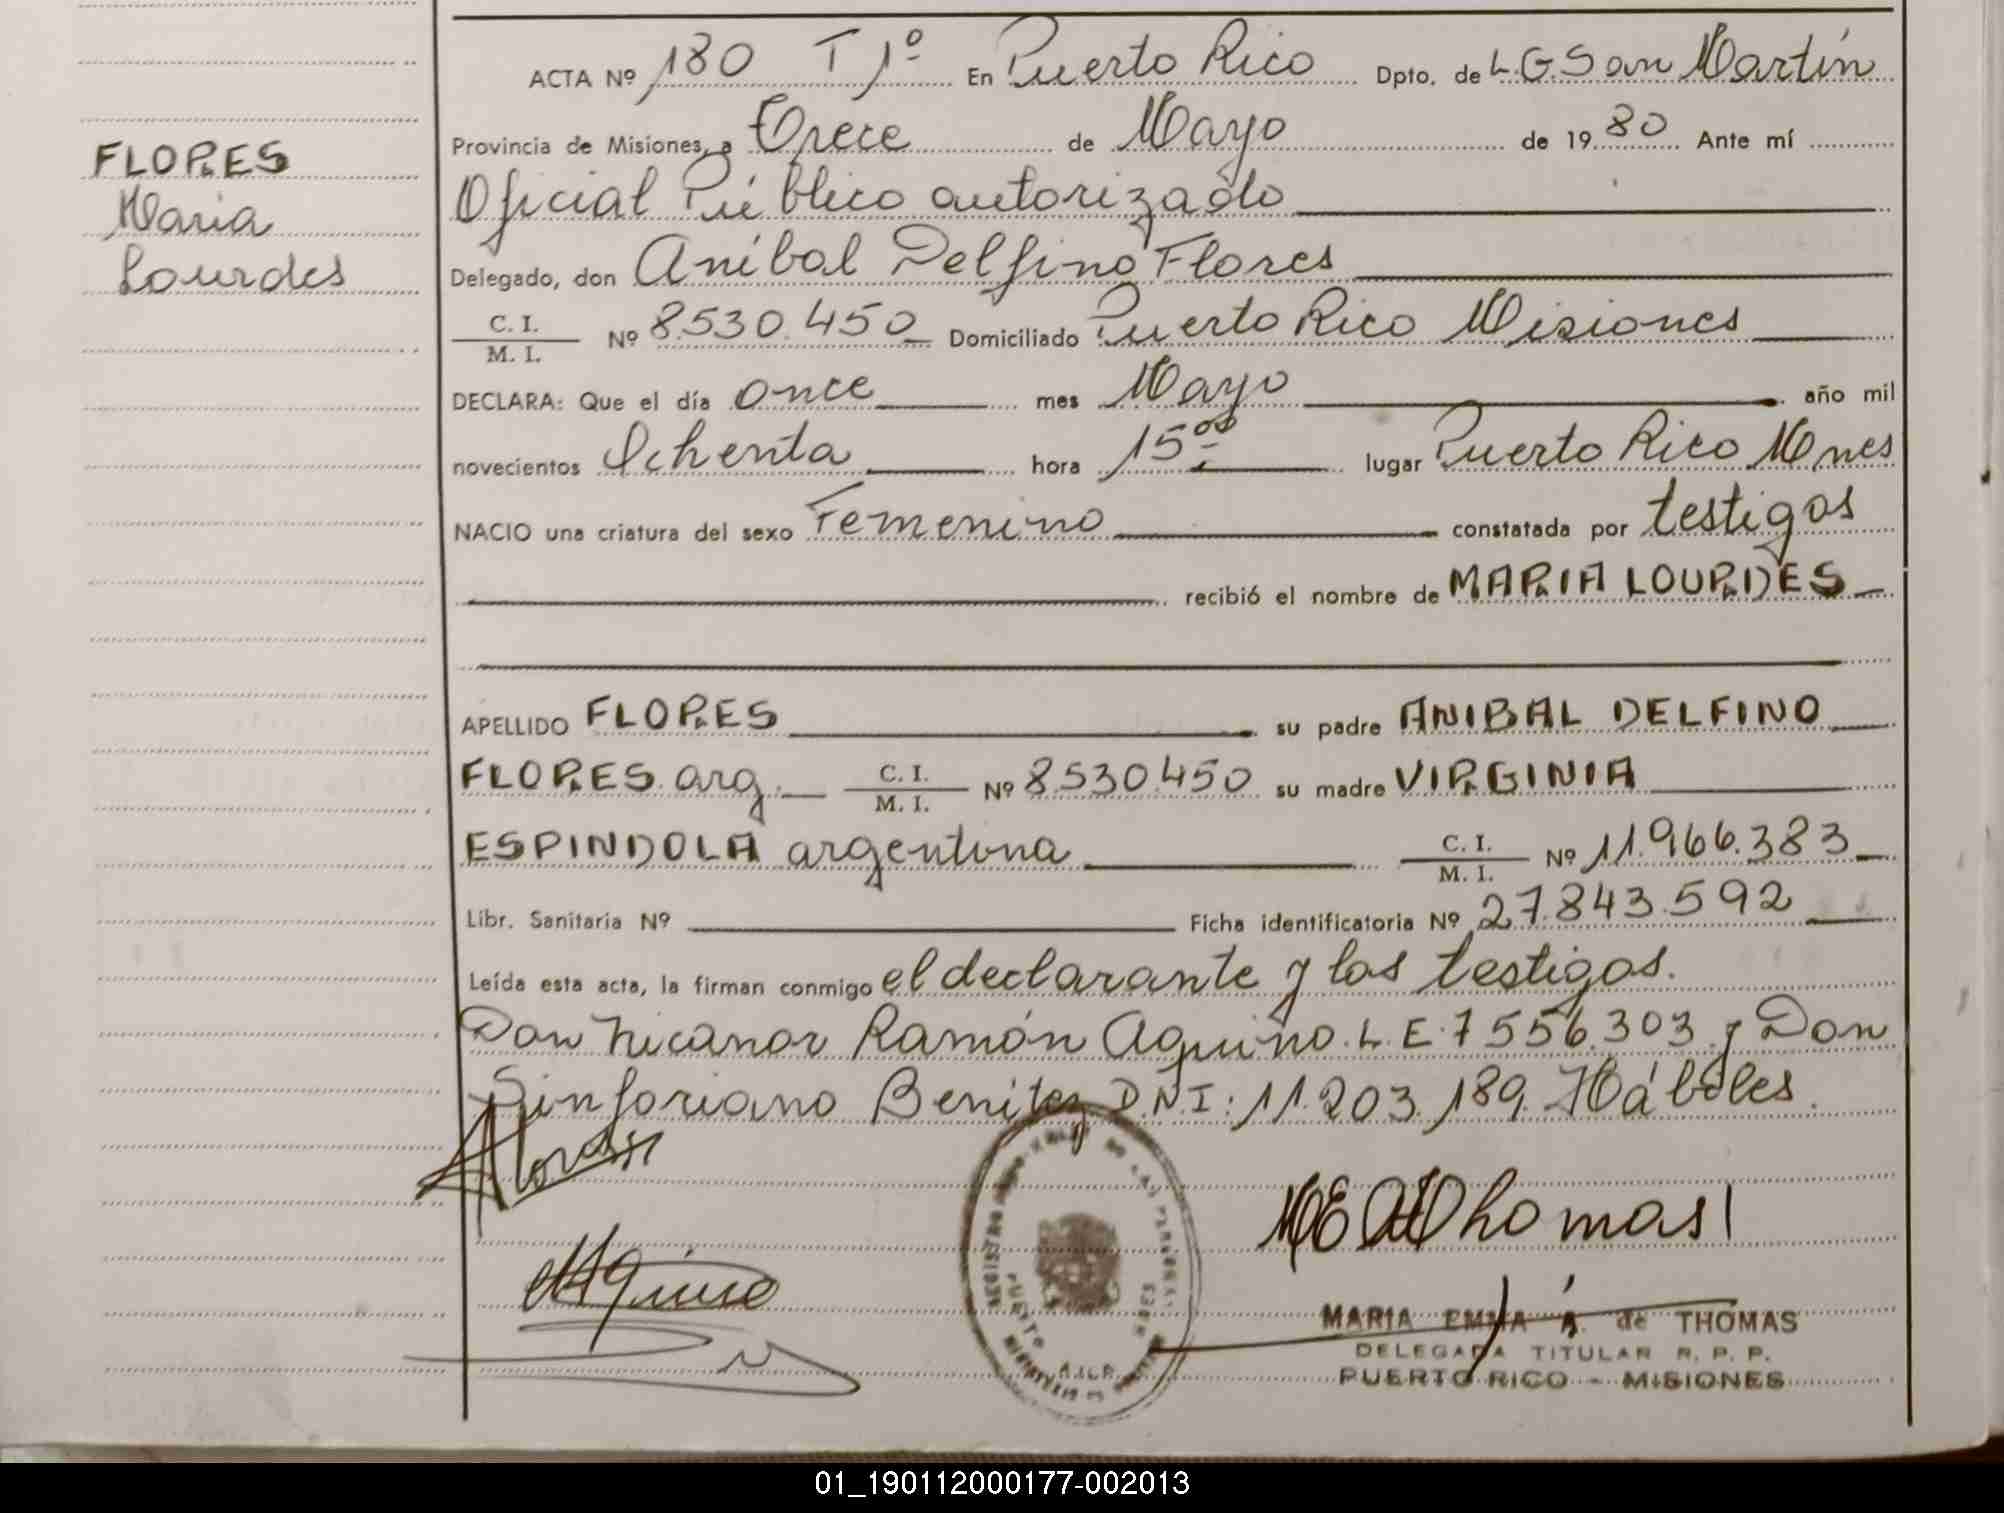 ACTA Nº 180 T 1º En Puerto Rico Dpto. de L.G.San Martín
Provincia de Misiones, a Trece de Mayo de 1980 Ante mí
Oficial Público autorizado
Delegado, don Aníbal Delfino Flores
C. I.
M. I. Nº 8.530.450 Domiciliado Puerto Rico Misiones
DECLARA: Que el día once mes Mayo año mil
novecientos Ochenta hora 15 lugar Puerto Rico Mnes
NACIO una criatura del sexo Femenino constatada por testigos
recibió el nombre de MARIA LOURDES
APELLIDO FLORES su padre ANIBAL DELFINO
FLORES arg. C. I. M. I. Nº 8.530.450 su madre VIRGINIA
ESPINDOLA argentina C. I. M. I. Nº 11.966.383
Libr. Sanitaria Nº Ficha identificatoria Nº 27.843.592
Leída esta acta, la firman conmigo el declarante y los testigos.
Don Nicanor Ramón Aquino. L.E. 7556.303 y Don
Sinforiano Benitez D.N.I: 11.203.189. Hábiles.
FLORES
Maria
Lourdes
Aquino
Thomas
MARIA EMMA A. de THOMAS
DELEGADA TITULAR R. P. P.
PUERTO RICO - MISIONES
01_190112000177-002013